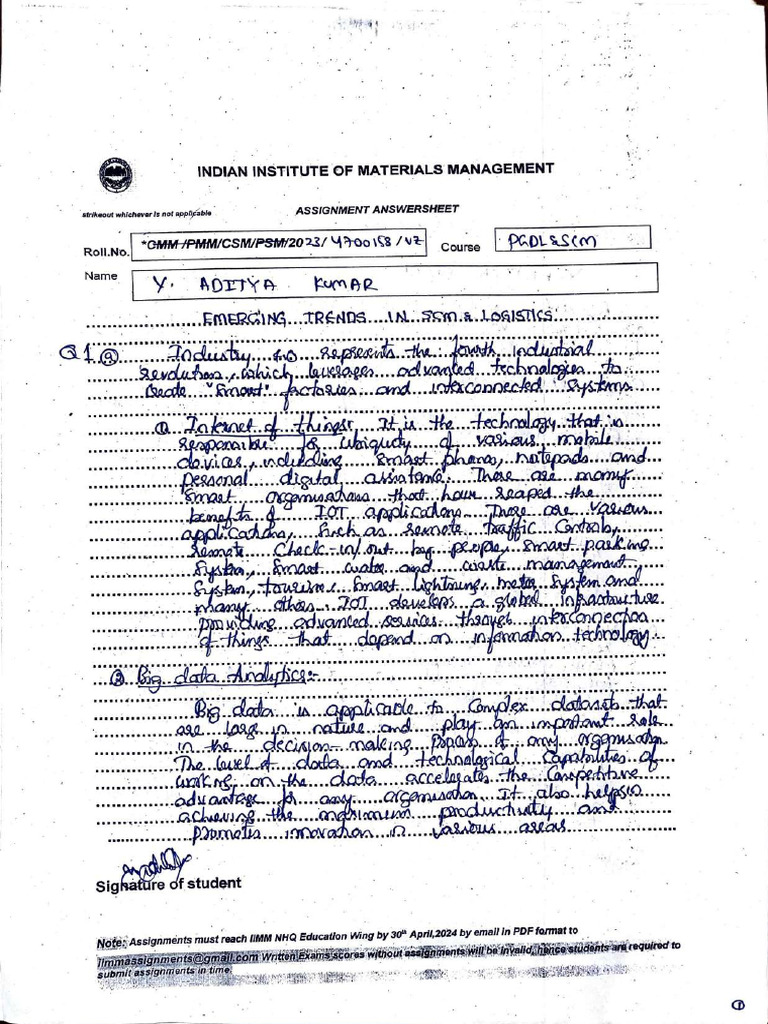 INDIAN INSTITUTE OF MATERIALS MANAGEMENT
strikeout whichever is not applicable
ASSIGNMENT ANSWERSHEET
Roll.No. *GMM /PMM/CSM/PSM/2023/4700158/VZ Course PGDL&SCM
Name Y. ADITYA KUMAR
EMERGING TRENDS IN SCM & LOGISTICS
Q1 a Industry 4.0 represents the fourth industrial
revolution, which leverages advanced technologies to
create "Smart" factories and interconnected systems
① Internet of things: It is the technology that is
responsible for ubiquity of various mobile
devices, including smart phones, notepads and
personal digital assistans. There are many
smart organisations that have reaped the
benefits of IOT applications. There are various
applications, such as remote traffic controls,
remote check-in/out by people, smart parking
system, smart water and waste management
system, tourism, smart lightning, metro system and
many others. IOT develops a global infrastructure
providing advanced services through interconnection
of things that depend on information technology
② Big data Analytics:-
Big data is applicable to complex datasets that
are large in nature and play an important role
in the decision-making process of any organisation
The level of data and technological capabilities of
working on the data accelerates the competitive
advantage for any organisation. It also helps in
achieving the maximum productivity and
promotes innovation in various areas
Signature of student
Note: Assignments must reach IIMM NHQ Education Wing by 30th April,2024 by email in PDF format to
iimmassignments@gmail.com Written Exams scores without assignments will be invalid, hence students are required to
submit assignments in time.
①